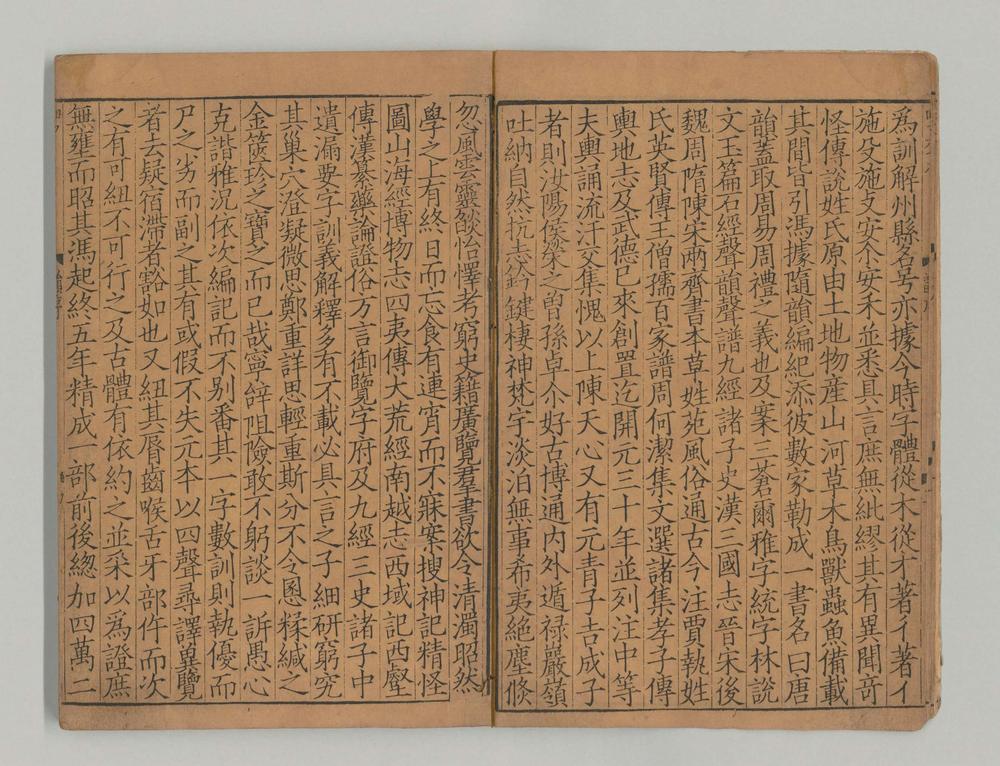 為訓解州縣名号亦據今時字體從木從才著彳著亻
施殳施攴安尒安禾並悉具言庶無紕繆其有異聞奇
怪傳說姓氏原由土地物産山河草木鳥獸蟲魚備載
其間皆引馮據隨韻編紀添彼數家勒成一書名曰唐
韻蓋取周易周禮之義也及案三蒼爾雅字統字林說
文玉篇石經聲韻聲譜九經諸子史漢三國志晉宋後
魏周隋陳宋兩齊書本草姓苑風俗通古今注賈執姓
氏英賢傳王僧孺百家譜周何潔集文選諸集孝子傳
輿地志及武德已來創置迄開元三十年並列注中等
夫輿誦流汗交集愧以上陳天心又有元青子吉成子
者則汝陽侯榮之曽孫卓尒好古博通內外遁禄巖嶺
吐納自然抗志鈐鍵棲神梵宇淡泊無事希夷絶塵倐
忽風雲靈欻怡懌考窮史籍廣覽羣書欲令清濁昭然
學之上有終日而忘食有連宵而不寐案搜神記精怪
圖山海經博物志四夷傳大荒經南越志西域記西壑
傳漢纂藥論證俗方言御覽字府及九經三史諸子中
遺漏要字訓義解釋多有不載必具言之子細研窮究
其巢穴澄凝微思鄭重詳思輕重斯分不令慁糅緘之
金篋珍之寶之而已哉寧辞阻險敢不躬談一訴愚心
克諧雅况依次編記而不别番其一字數訓則執優而
尸之劣而副之其有或假不失元本以四聲尋譯冀覽
者去疑宿滯者豁如也又紐其脣齒喉舌牙部仵而次
之有可紐不可行之及古體有依約之並采以為證庶
無壅而昭其馮起終五年精成一部前後緫加四萬二